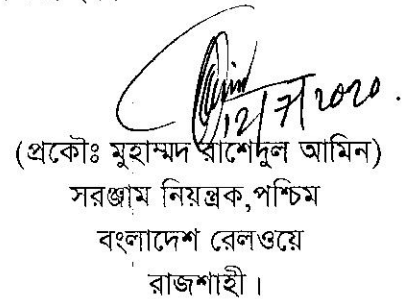 12/7/2020.
(প্রকৌঃ মুহাম্মদ রাশেদুল আমিন)
সরঞ্জাম নিয়ন্ত্রক,পশ্চিম
বংলাদেশ রেলওয়ে
রাজশাহী।